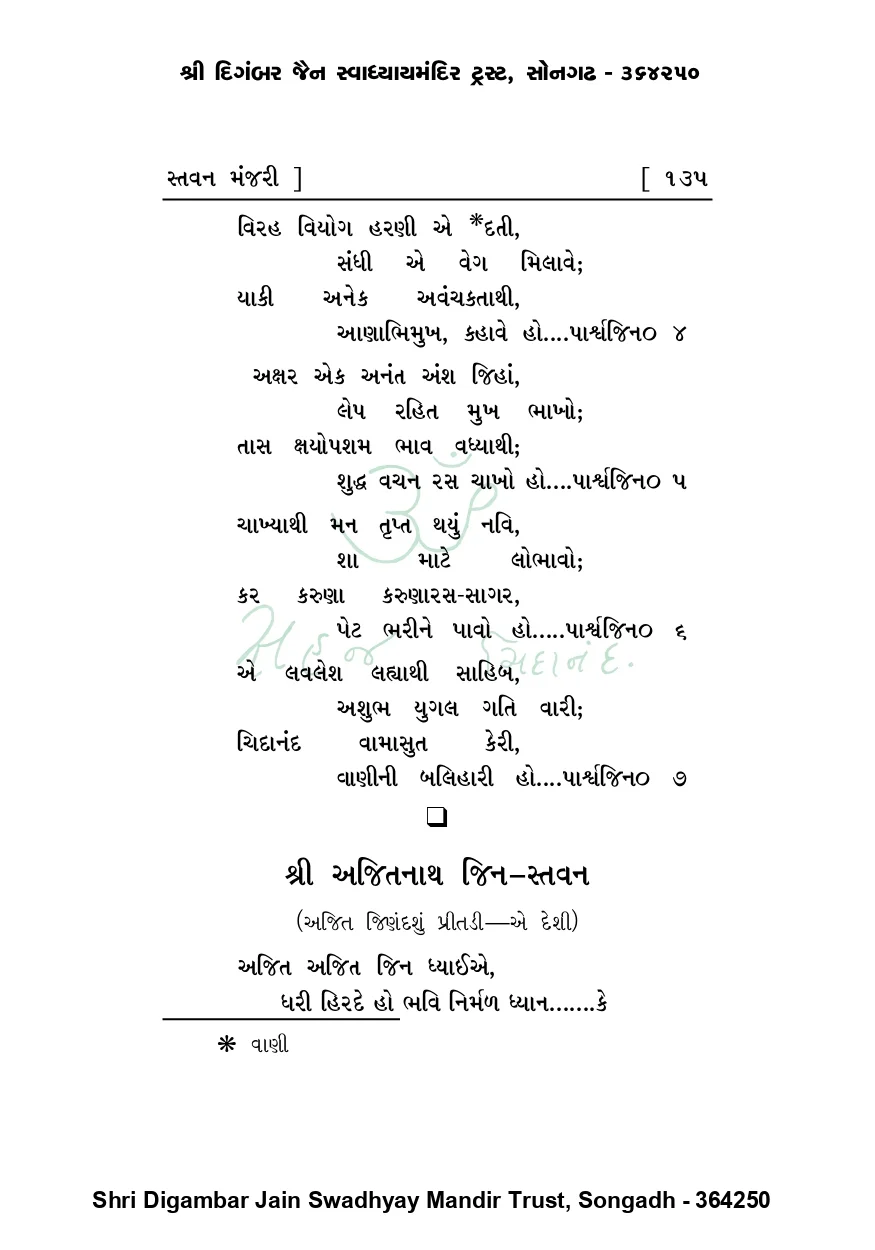 શ્રી દિગંબર જૈન સ્વાધ્યાયમંદિર ટ્રસ્ટ, સોનગઢ - ૩૬૪૨૫૦
સ્તવન મંજરી ] [ ૧૩૫
વિરહ વિયોગ હરણી એ *દતી,
સંધી એ વેગ મિલાવે;
યાકી અનેક અવંચકતાથી,
આણાભિમુખ, કહાવે હો....પાર્શ્વજિન૦ ૪
અક્ષર એક અનંત અંશ જિહાં,
લેપ રહિત મુખ ભાખો;
તાસ ક્ષયોપશમ ભાવ વધ્યાથી;
શુદ્ધ વચન રસ ચાખો હો....પાર્શ્વજિન૦ ૫
ચાખ્યાથી મન તૃપ્ત થયું નવિ,
શા માટે લોભાવો;
કર કરુણા કરુણારસ-સાગર,
પેટ ભરીને પાવો હો.....પાર્શ્વજિન૦ ૬
એ લવલેશ લહ્યાથી સાહિબ,
અશુભ યુગલ ગતિ વારી;
ચિદાનંદ વામાસુત કેરી,
વાણીની બલિહારી હો....પાર્શ્વજિન૦ ૭
શ્રી અજિતનાથ જિન–સ્તવન
(અજિત જિણંદશું પ્રીતડી—એ દેશી)
અજિત અજિત જિન ધ્યાઈએ,
ધરી હિરદે હો ભવિ નિર્મળ ધ્યાન.......કે
* વાણી
ૐ
સહજ ચિદાનંદ.
Shri Digambar Jain Swadhyay Mandir Trust, Songadh - 364250